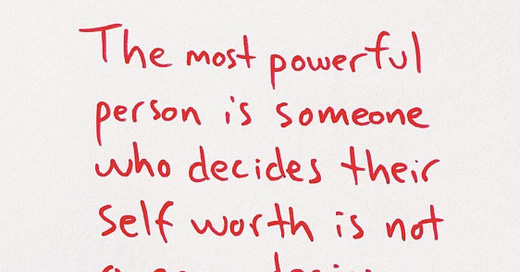 The most powerful
person is someone
who decides their
self worth is not